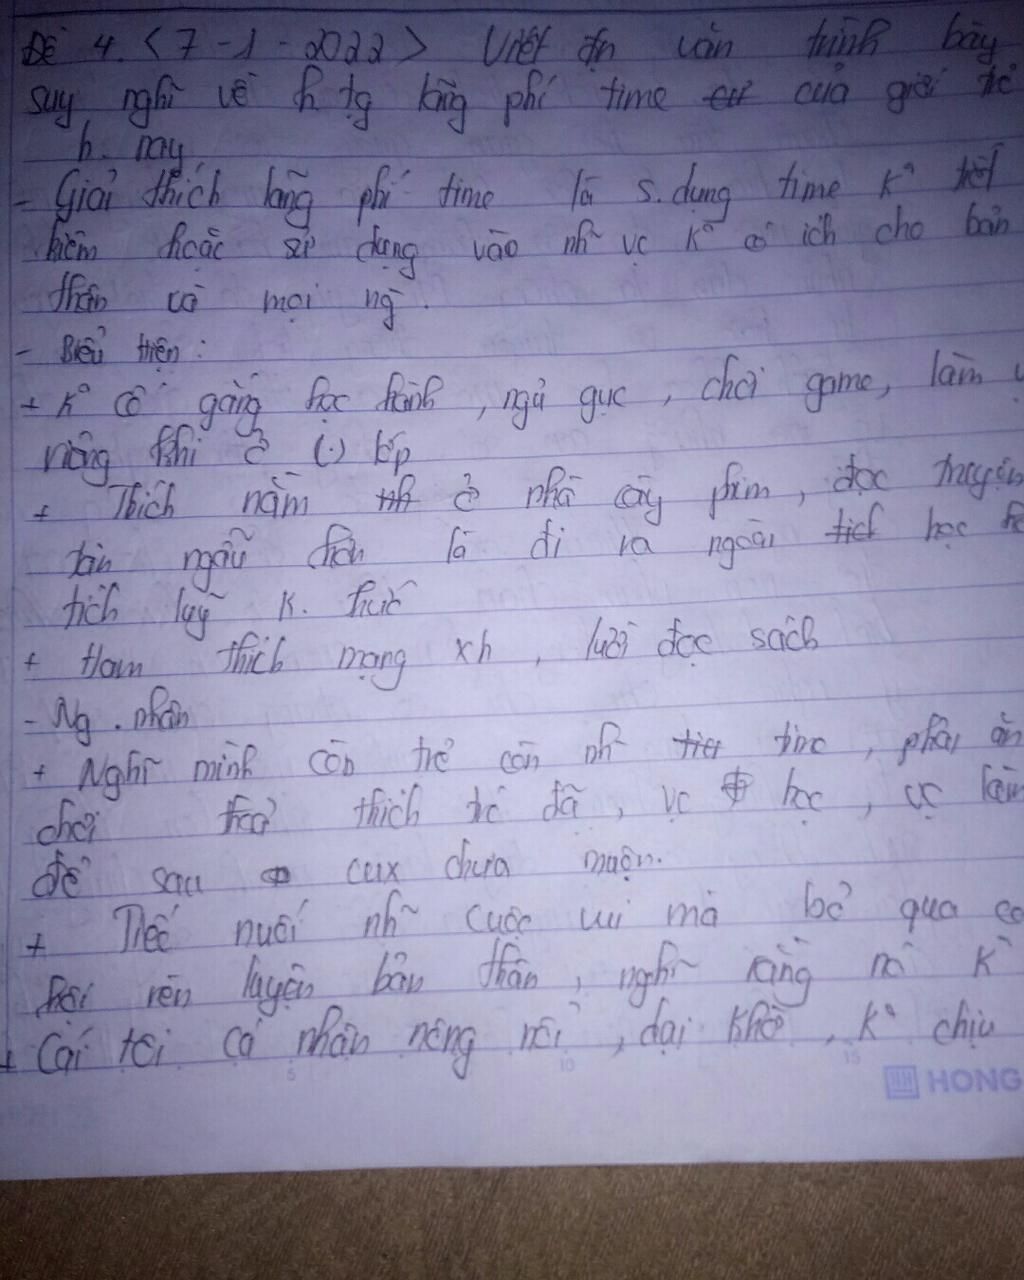 Đề 4. <7-1-2022> Viết đn văn trình bày
suy nghĩ về h tg lãng phí time của giới trẻ
h. nay
- Giải thích lãng phí time là s. dụng time k° tiết
kiệm hoặc sử dụng vào nh~ vc k° có ích cho bản
thân và mọi ng`.
- Biểu hiện:
+ k° cố gắng học hành, ngủ gục, chơi game, làm v
riêng khi ở (.) lớp
+ Thích nằm ở nhà cày phim, đọc truyện
tản ngẫu hơn là đi ra ngoài học
tích luỹ k. thức
+ Ham thích mạng xh, lười đọc sách
- Ng. nhân
+ Nghĩ mình còn trẻ còn nh~ time, phải ăn
chơi thoả thích đã, vc học, vc làm
để sau cux chưa muộn.
+ Tiếc nuối nh~ cuộc vui mà bỏ qua cơ
hội rèn luyện bản thân, nghĩ rằng nó k°
+ Cái tôi cá nhân nông nổi, dại khờ, k° chịu
HONG
5 10 15